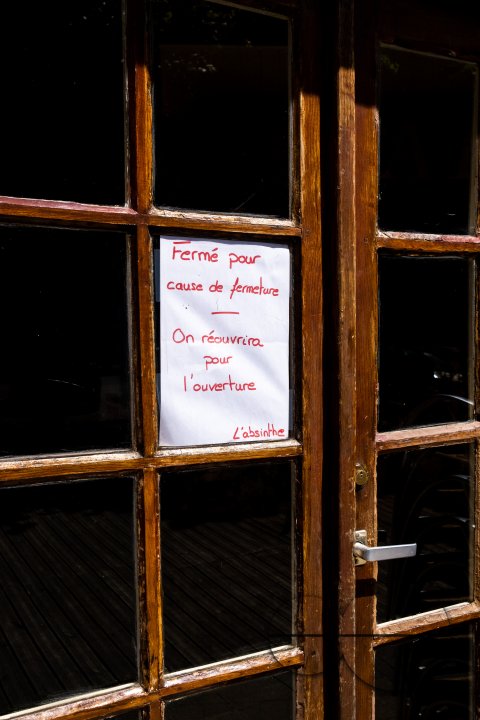 Fermé pour
cause de fermeture
—
On réouvrira
pour
l'ouverture
L'absinthe